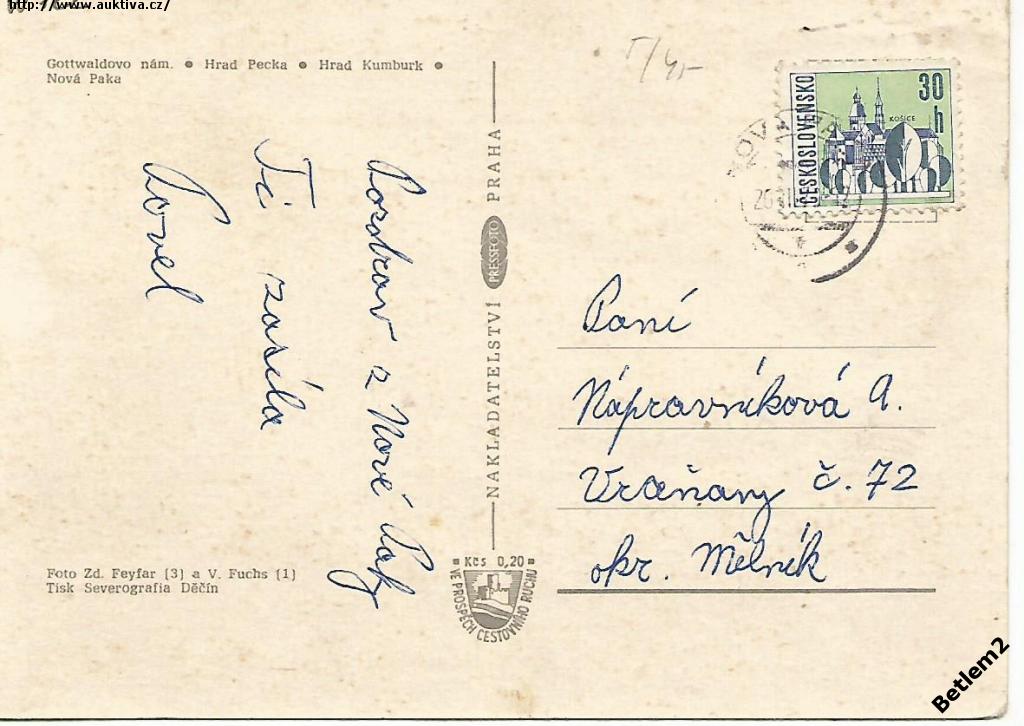 http://www.auktiva.cz/
Gottwaldovo nám. ● Hrad Pecka ● Hrad Kumburk ●
Nová Paka
Pozdrav z Nové Paky
Ti zasílá
Pavel
NAKLADATELSTVÍ PRESSFOTO PRAHA
ČESKOSLOVENSKO
30
h
KOŠICE
Paní
Nápravníková A.
Vraňany č. 72
okr. Mělník
Foto Zd. Feyfar (3) a V. Fuchs (1)
Tisk Severografia Děčín
Kčs 0,20
VE PROSPĚCH CESTOVNÍHO RUCHU
Betlem2